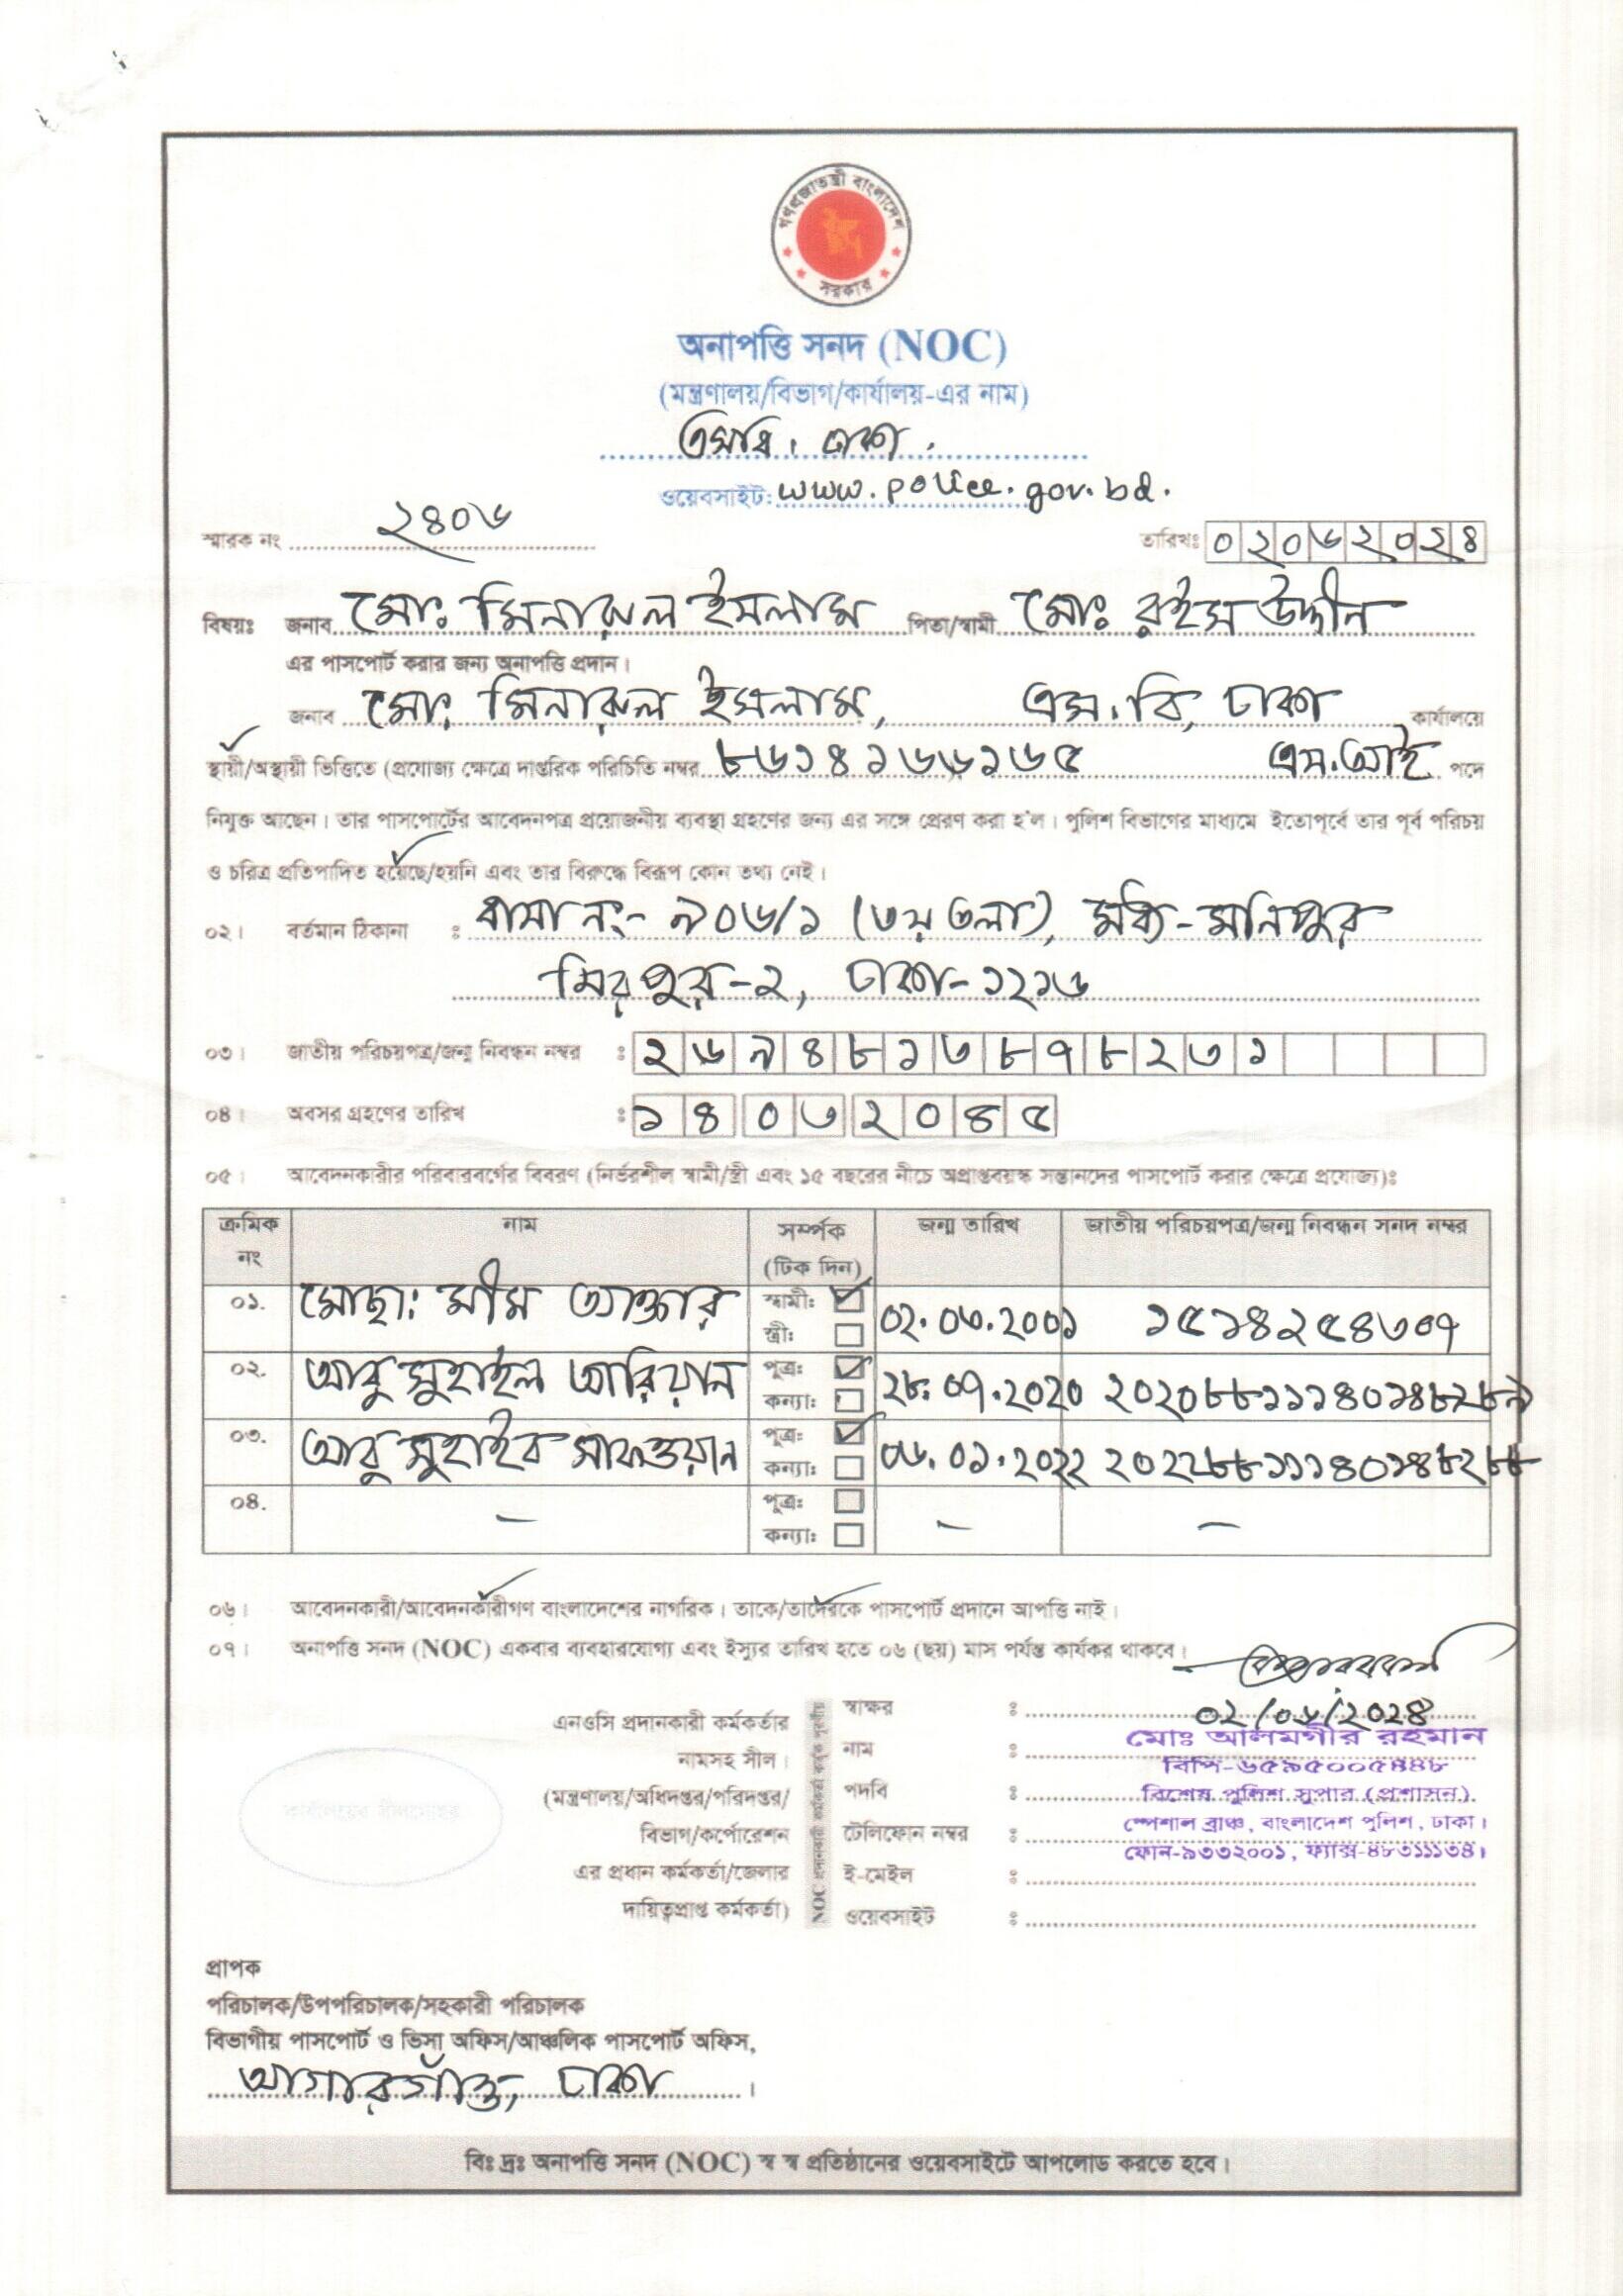 গণপ্রজাতন্ত্রী বাংলাদেশ
সরকার
অনাপত্তি সনদ (NOC)
(মন্ত্রণালয়/বিভাগ/কার্যালয়-এর নাম)
এসবি, ঢাকা.
ওয়েবসাইট: www.police.gov.bd.
স্মারক নং ২৪০৬ তারিখঃ ০২০৬২০২৪
বিষয়ঃ জনাব মোঃ মিনারুল ইসলাম পিতা/স্বামী মোঃ রইস উদ্দীন
এর পাসপোর্ট করার জন্য অনাপত্তি প্রদান।
জনাব মোঃ মিনারুল ইসলাম, এস.বি, ঢাকা কার্যালয়ে
স্থায়ী/অস্থায়ী ভিত্তিতে (প্রযোজ্য ক্ষেত্রে দাপ্তরিক পরিচিতি নম্বর ৮৬১৪১৬৬১৬৫ এস.আই পদে
নিযুক্ত আছেন। তার পাসপোর্টের আবেদনপত্র প্রয়োজনীয় ব্যবস্থা গ্রহণের জন্য এর সঙ্গে প্রেরণ করা হ'ল। পুলিশ বিভাগের মাধ্যমে ইতোপূর্বে তার পূর্ব পরিচয়
ও চরিত্র প্রতিপাদিত হয়েছে/হয়নি এবং তার বিরুদ্ধে বিরূপ কোন তথ্য নেই।
০২। বর্তমান ঠিকানা : বাসা নং- ৯০৬/১ (৩য় তলা), মধ্য-মনিপুর
মিরপুর-২, ঢাকা-১২১৬
০৩। জাতীয় পরিচয়পত্র/জন্ম নিবন্ধন নম্বর : ২৬৯৪৮১৩৮৭৮২৩১
০৪। অবসর গ্রহণের তারিখ : ১৪০৩২০৪৫
০৫। আবেদনকারীর পরিবারবর্গের বিবরণ (নির্ভরশীল স্বামী/স্ত্রী এবং ১৫ বছরের নীচে অপ্রাপ্তবয়স্ক সন্তানদের পাসপোর্ট করার ক্ষেত্রে প্রযোজ্য)ঃ
ক্রমিক নং নাম সর্ম্পক (টিক দিন) জন্ম তারিখ জাতীয় পরিচয়পত্র/জন্ম নিবন্ধন সনদ নম্বর
০১. মোছা: মীম আক্তার স্বামী: ✓ ০২.০৩.২০০১ ১৫১৪২৫৪৩০৭
স্ত্রী:
০২. আবু সুহাইল আরিয়ান পুত্র: ✓ ২৮.০৭.২০২০ ২০২০৮৮১১১৪০১৪৮২৮৯
কন্যা:
০৩. আবু সুহাইব সাফওয়ান পুত্র: ✓ ০৬.০১.২০২২ ২০২২৮৮১১১৪০১৪৮২৮৮
কন্যা:
০৪. - পুত্র: - -
কন্যা:
০৬। আবেদনকারী/আবেদনকারীগণ বাংলাদেশের নাগরিক। তাকে/তাদেরকে পাসপোর্ট প্রদানে আপত্তি নাই।
০৭। অনাপত্তি সনদ (NOC) একবার ব্যবহারযোগ্য এবং ইস্যুর তারিখ হতে ০৬ (ছয়) মাস পর্যন্ত কার্যকর থাকবে।
এনওসি প্রদানকারী কর্মকর্তার
নামসহ সীল।
(মন্ত্রণালয়/অধিদপ্তর/পরিদপ্তর/
বিভাগ/কর্পোরেশন
এর প্রধান কর্মকর্তা/জেলার
দায়িত্বপ্রাপ্ত কর্মকর্তা)
কার্যালয়ের সীলমোহর
NOC প্রদানকারী কর্মকর্তা কর্তৃক পূরণীয়
স্বাক্ষর : ০২/০৬/২০২৪
নাম : মোঃ আলমগীর রহমান
বিপি-৬৫৯৫০০৫৪৪৮
পদবি : বিশেষ পুলিশ সুপার (প্রশাসন)
স্পেশাল ব্রাঞ্চ, বাংলাদেশ পুলিশ, ঢাকা।
টেলিফোন নম্বর : ফোন-৯৩৩২০০১, ফ্যাক্স-৪৮৩১১১৩৪।
ই-মেইল :
ওয়েবসাইট :
প্রাপক
পরিচালক/উপপরিচালক/সহকারী পরিচালক
বিভাগীয় পাসপোর্ট ও ভিসা অফিস/আঞ্চলিক পাসপোর্ট অফিস,
আগারগাঁও, ঢাকা।
বিঃ দ্রঃ অনাপত্তি সনদ (NOC) স্ব স্ব প্রতিষ্ঠানের ওয়েবসাইটে আপলোড করতে হবে।